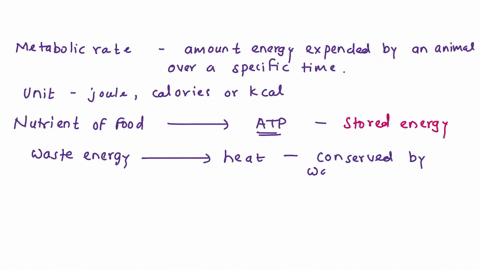 Metabolic rate - amount energy expended by an animal
over a specific time.
Unit - joule, calories or kcal
Nutrient of food → ATP - Stored energy
Waste energy → heat - conserved by
wa